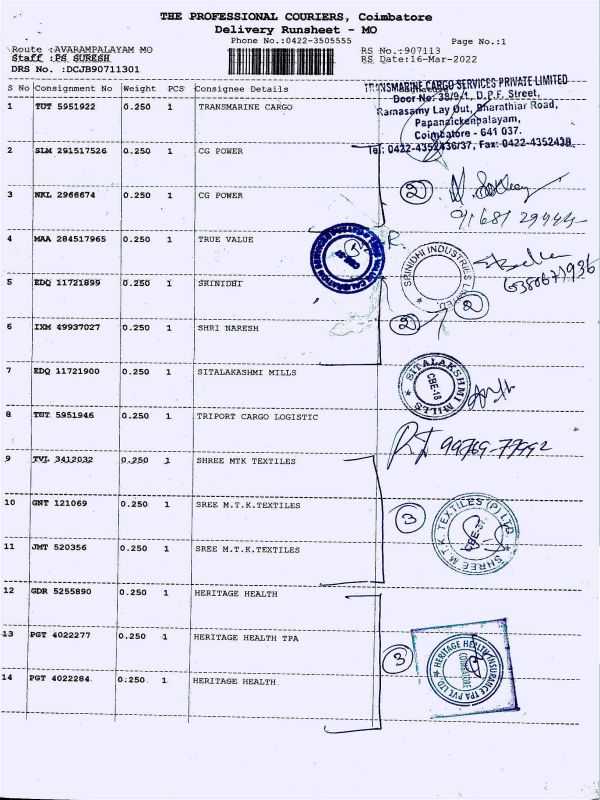 THE PROFESSIONAL COURIERS, Coimbatore
Delivery Runsheet - MO
Phone No.:0422-3505555
Page No.:1
Route :AVARAMPALAYAM MO
RS No.:907113
Staff :PS SURESH
RS Date:16-Mar-2022
DRS No. :DCJB90711301
S No Consignment No Weight PCS Consignee Details
TRANSMARINE CARGO SERVICES PRIVATE LIMITED
Door No: 38/9/1, D.P.F. Street,
Ramasamy Lay Out, Bharathiar Road,
Papanaickenpalayam,
Coimbatore - 641 037.
Tel: 0422-4352436/37, Fax: 0422-4352438
1 TUT 5951922 0.250 1 TRANSMARINE CARGO
2 SLM 291517526 0.250 1 CG POWER
2
3 NKL 2966674 0.250 1 CG POWER
4 MAA 284517965 0.250 1 TRUE VALUE
SRINIDHI INDUSTRIES LIMITED
5 EDQ 11721899 0.250 1 SRINIDHI
2
2
6 IXM 49937027 0.250 1 SHRI NARESH
7 EDQ 11721900 0.250 1 SITALAKASHMI MILLS
SITALAKSHMI MILLS
CBE-18
8 TUT 5951946 0.250 1 TRIPORT CARGO LOGISTIC
9 TVL 3412032 0.250 1 SHREE MTK TEXTILES
10 GNT 121069 0.250 1 SREE M.T.K.TEXTILES
3
SHREE M.T.K. TEXTILES (P) LTD
11 JMT 520356 0.250 1 SREE M.T.K.TEXTILES
12 GDR 5255890 0.250 1 HERITAGE HEALTH
13 PGT 4022277 0.250 1 HERITAGE HEALTH TPA
3
HERITAGE HEALTH INSURANCE TPA PVT LTD
COIMBATORE
14 PGT 4022284 0.250 1 HERITAGE HEALTH